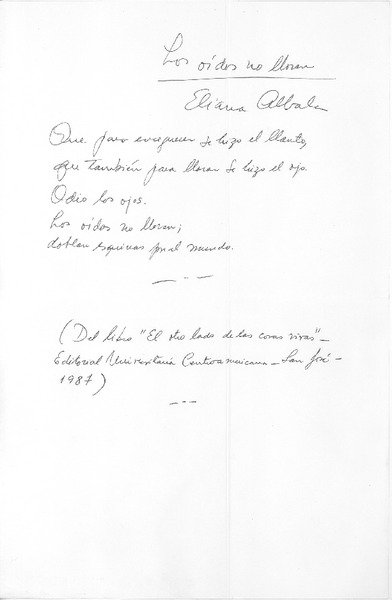 Los oídos no lloran
Eliana Albala
Que para enceguecer se hizo el llanto,
que también para llorar se hizo el ojo.
Odio los ojos.
Los oídos no lloran;
doblan esquinas por el mundo.
(Del libro "El otro lado de las cosas vivas" –
Editorial Universitaria Centroamericana – San José –
1987)